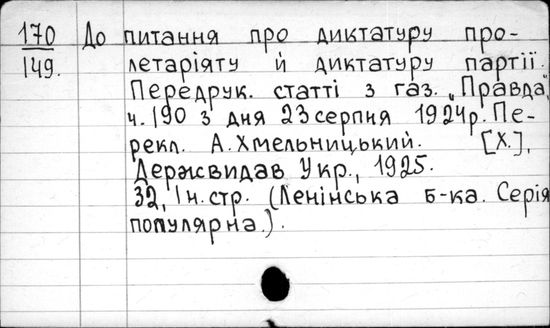 170 До питання про диктатуру про-
149. летаріяту й диктатуру партії.
Передрук. статті з газ. „Правда",
ч. 190 з дня 23 серпня 1924 р. Пе-
рекл. А. Хмельницький. [Х.],
Держвидав Укр., 1925.
32, 1 н. стр. (Ленінська б-ка. Серія
популярна.).